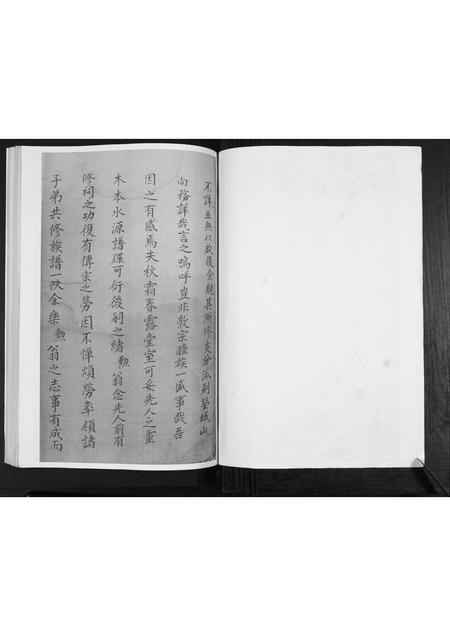 不詳並無以啟後余觀其所修支分派別塋域山
向務詳哉言之嗚呼豈非敦宗睦族一盛事哉吾
因之有感焉夫秋霜春露堂室可妥先人之靈
木本水源譜牒可衍後嗣之緒勲翁念先人前有
修祠之功復有傳宗之勞因不憚煩勞率領諸
子弟共修族譜一段余樂勲翁之志事有成而